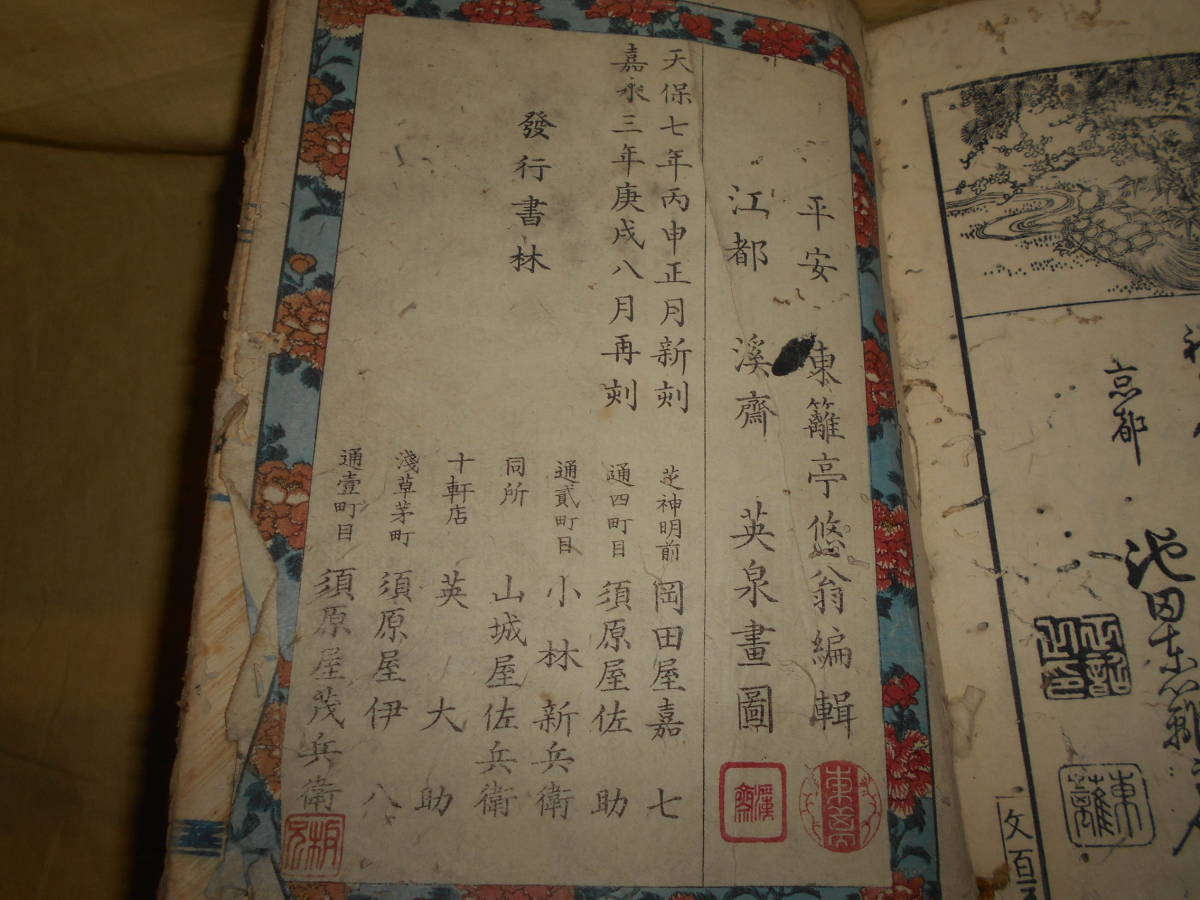 京都
池田東籬
文百
東籬
平安 東籬亭悠翁編輯
江都 溪齋 英泉畫圖
天保七年丙申正月新刻
嘉永三年庚戌八月再刻
發行書林
芝神明前 岡田屋嘉七
通四町目 須原屋佐助
通貳町目 小林新兵衛
同所 山城屋佐兵衛
十軒店 英大助
淺草茅町 須原屋伊八
通壹町目 須原屋茂兵衛